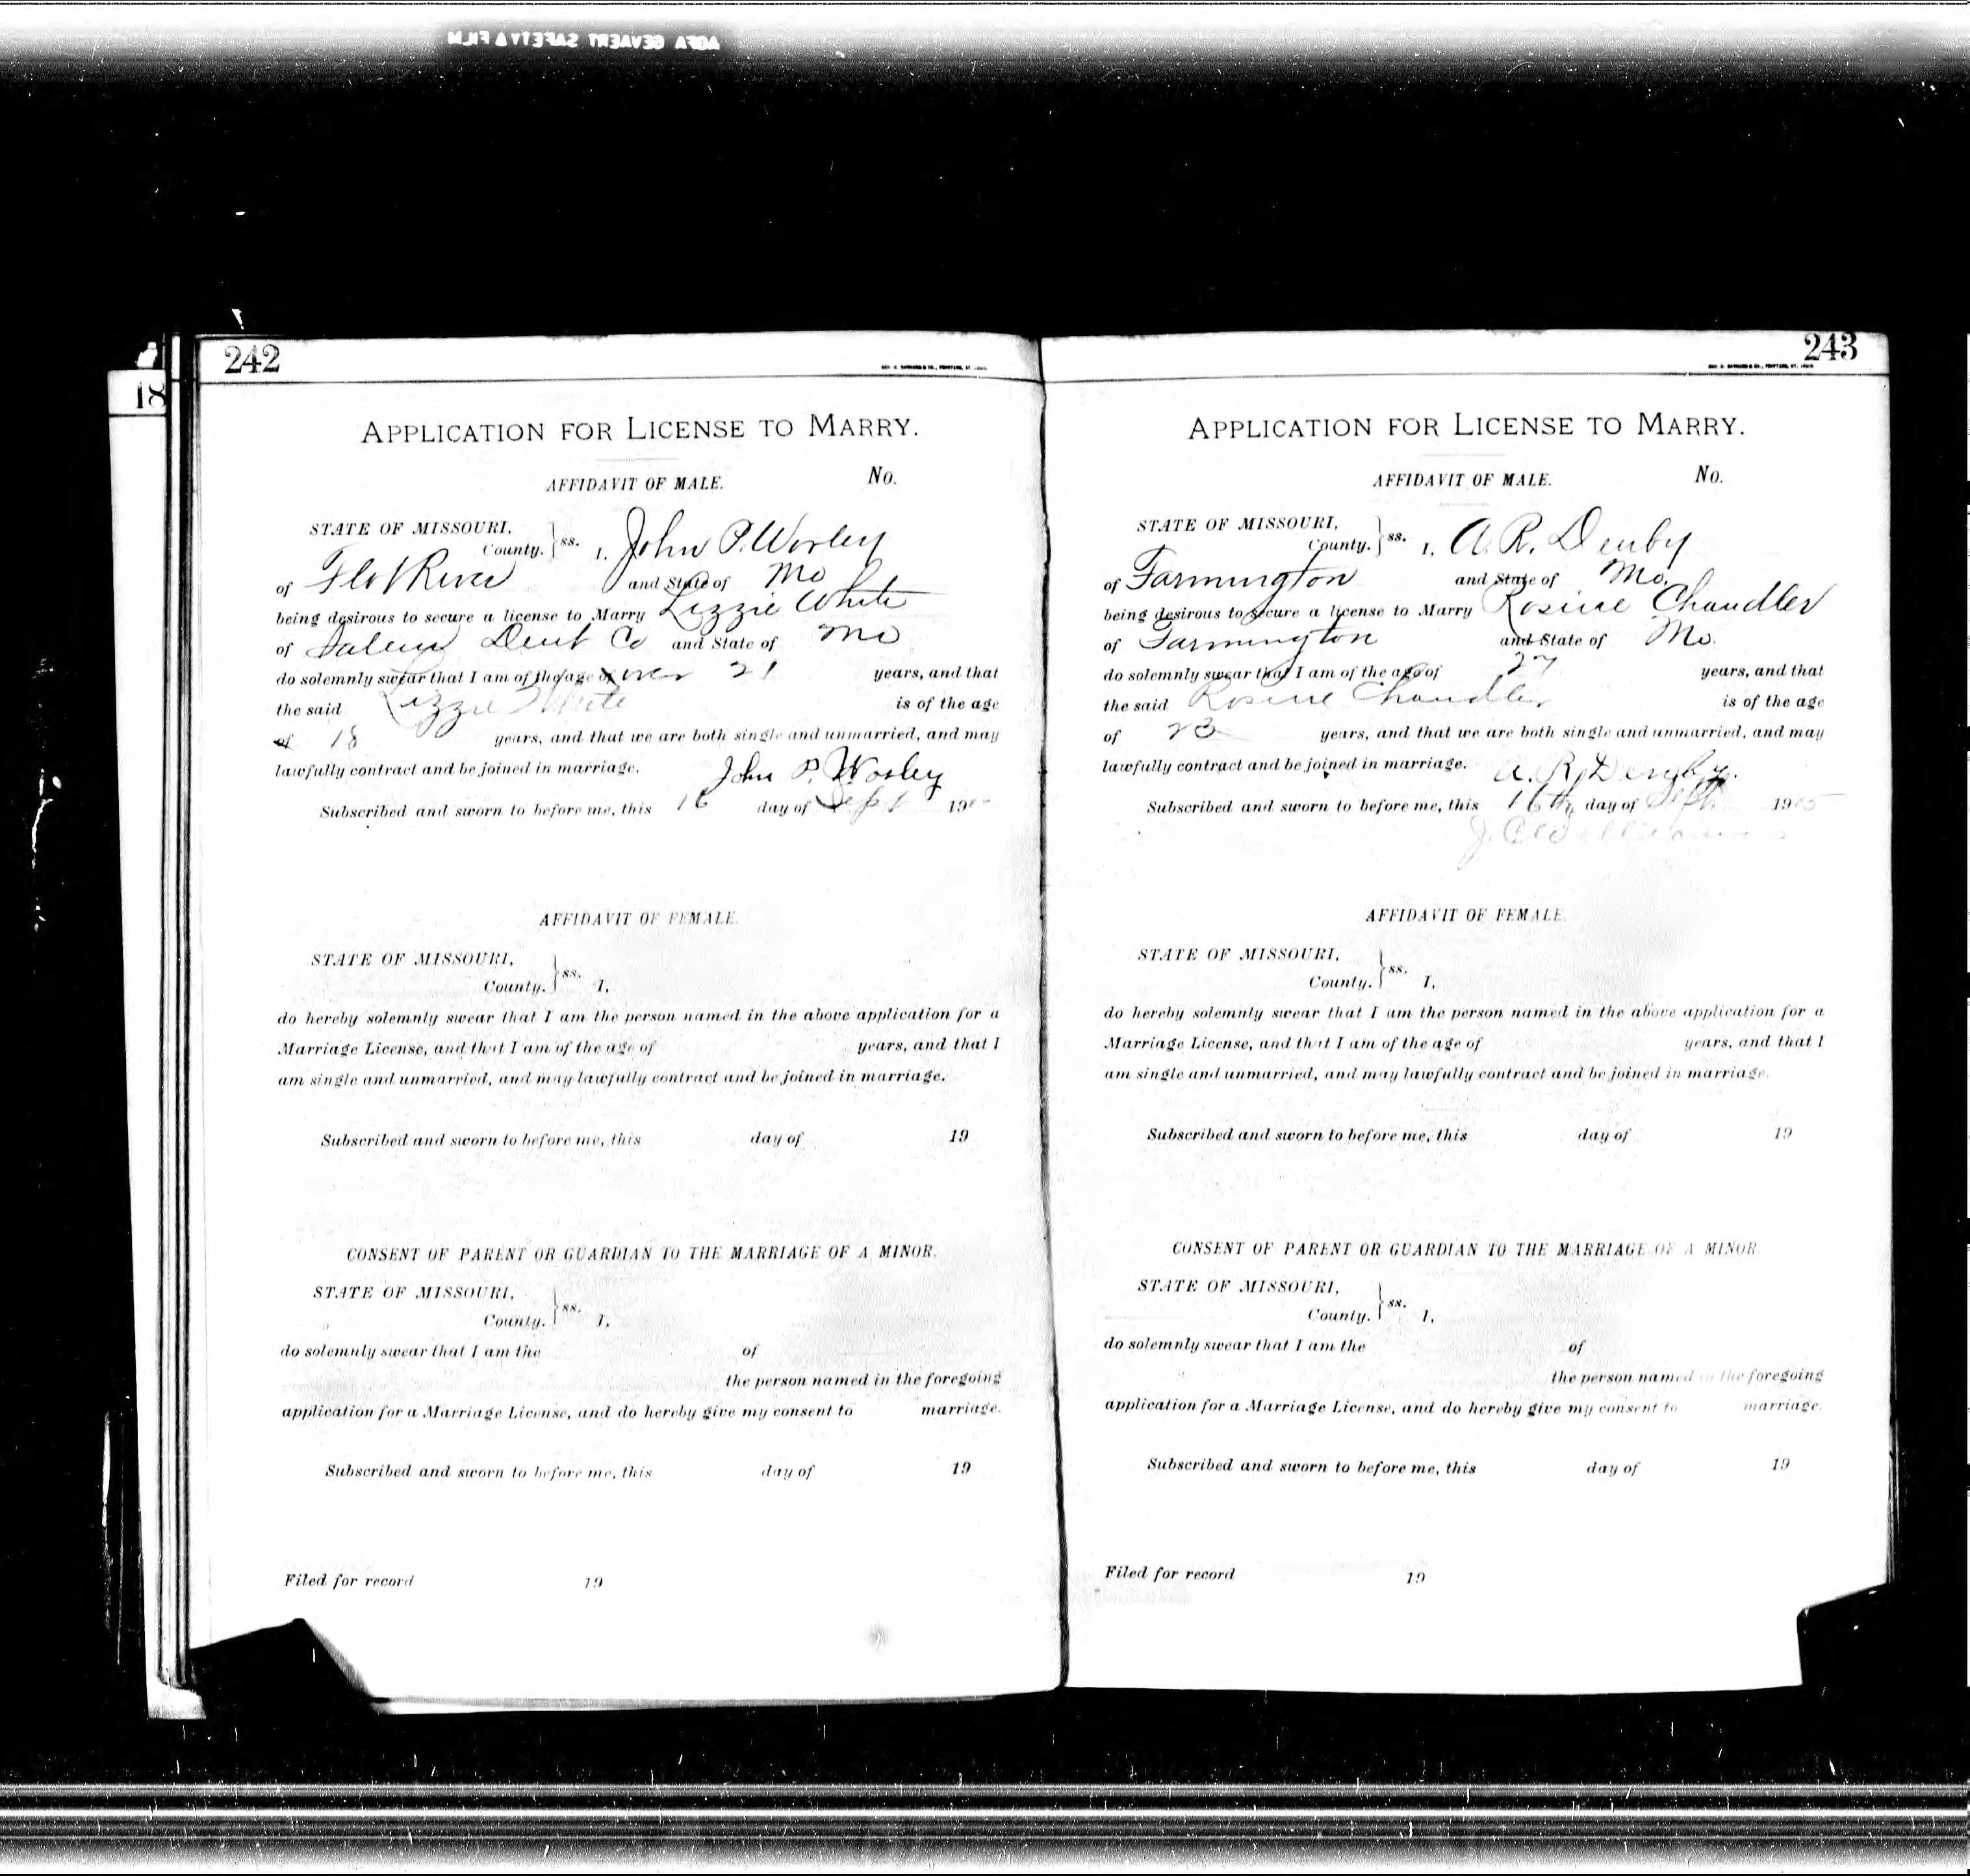 AGFA GEVAERT SAFETY FILM
18
242
APPLICATION FOR LICENSE TO MARRY.
AFFIDAVIT OF MALE. No.
STATE OF MISSOURI,
County. } ss. I, John P. Worley
of Flat River and State of Mo
being desirous to secure a license to Marry Lizzie White
of Salem Dent Co and State of Mo
do solemnly swear that I am of the age of over 21 years, and that
the said Lizzie White is of the age
of 18 years, and that we are both single and unmarried, and may
lawfully contract and be joined in marriage. John P. Worley
Subscribed and sworn to before me, this 16 day of Sept 190
AFFIDAVIT OF FEMALE.
STATE OF MISSOURI,
County. } ss. I,
do hereby solemnly swear that I am the person named in the above application for a
Marriage License, and that I am of the age of years, and that I
am single and unmarried, and may lawfully contract and be joined in marriage.
Subscribed and sworn to before me, this day of 19
CONSENT OF PARENT OR GUARDIAN TO THE MARRIAGE OF A MINOR.
STATE OF MISSOURI,
County. } ss. I,
do solemnly swear that I am the of
the person named in the foregoing
application for a Marriage License, and do hereby give my consent to marriage.
Subscribed and sworn to before me, this day of 19
Filed for record 19
243
APPLICATION FOR LICENSE TO MARRY.
AFFIDAVIT OF MALE. No.
STATE OF MISSOURI,
County. } ss. I, A. R. Denby
of Farmington and State of Mo.
being desirous to secure a license to Marry Rosine Chandler
of Farmington and State of Mo.
do solemnly swear that I am of the age of 27 years, and that
the said Rosine Chandler is of the age
of 23 years, and that we are both single and unmarried, and may
lawfully contract and be joined in marriage. A. R. Denby.
Subscribed and sworn to before me, this 16th day of Sept 1905
AFFIDAVIT OF FEMALE.
STATE OF MISSOURI,
County. } ss. I,
do hereby solemnly swear that I am the person named in the above application for a
Marriage License, and that I am of the age of years, and that I
am single and unmarried, and may lawfully contract and be joined in marriage.
Subscribed and sworn to before me, this day of 19
CONSENT OF PARENT OR GUARDIAN TO THE MARRIAGE OF A MINOR.
STATE OF MISSOURI,
County. } ss. I,
do solemnly swear that I am the of
the person named in the foregoing
application for a Marriage License, and do hereby give my consent to marriage.
Subscribed and sworn to before me, this day of 19
Filed for record 19